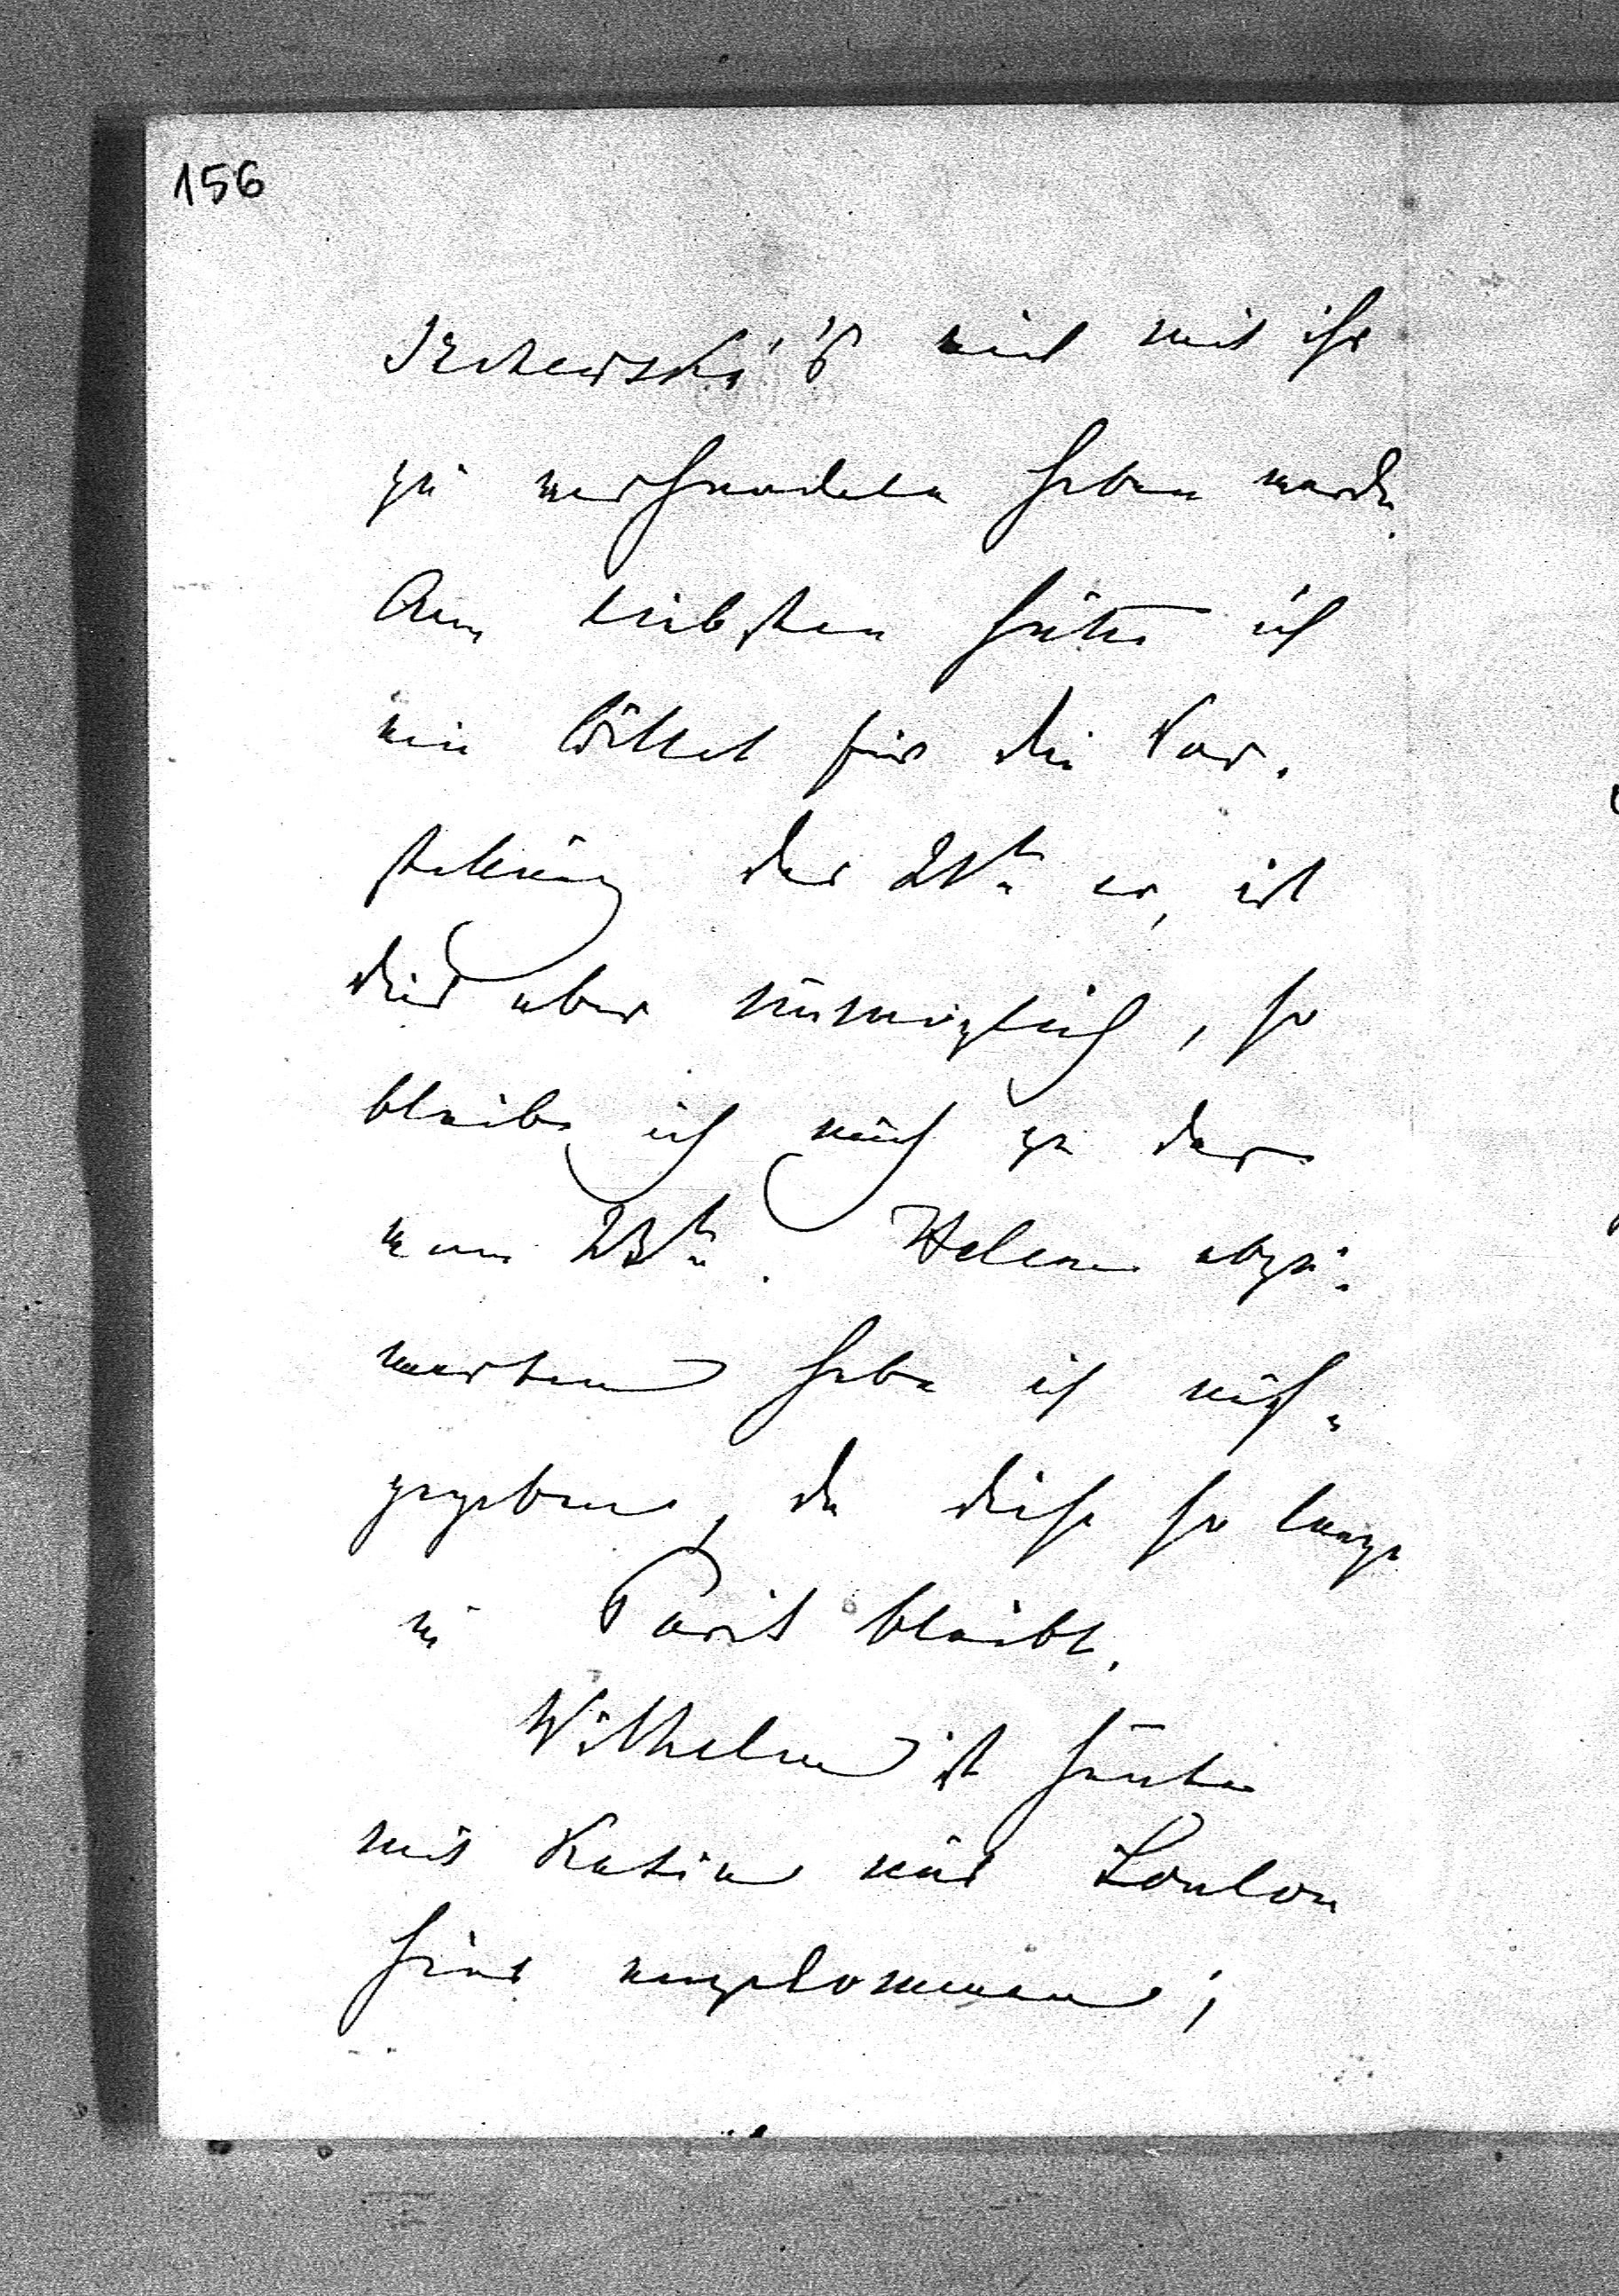 156
und mit ihr
zu verhandeln haben werde.
Am liebsten hätte ich
ein Billet für die Vor-
stellung der 21t. er, ist
dies aber unmöglich, so
bleibe ich auch zu der
vom 23t. Helene abzu-
warten habe ich auf-
gegeben, da diese so lange
in Paris bleibt.
Wilhelm ist heute
mit Katia aus London
hier angekommen;